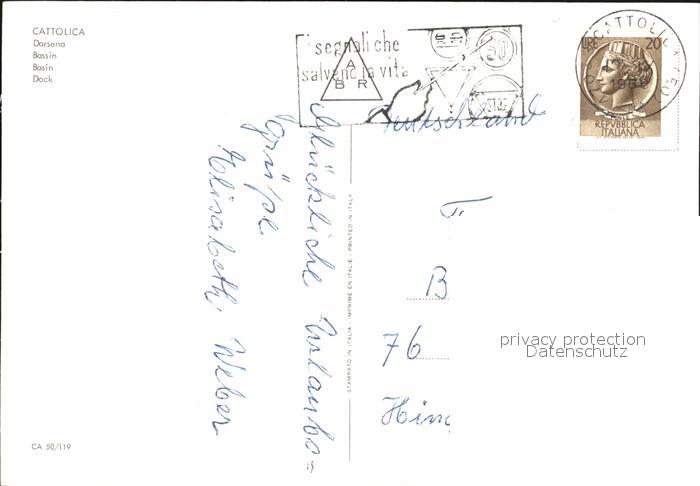 CATTOLICA
Darsena
Bassin
Basin
Dock
i segnali che
salvano la vita
A
B R
STOP
CATTOLICA
LIRE 20
REPVBBLICA
ITALIANA
Deutschland
F
B
76
Glückliche Urlaubs=
Grüße
Elisabeth Weber
STAMPATO IN ITALIA - IMPRIME EN ITALIE - PRINTED IN ITALY
privacy protection
Datenschutz
CA 50/119